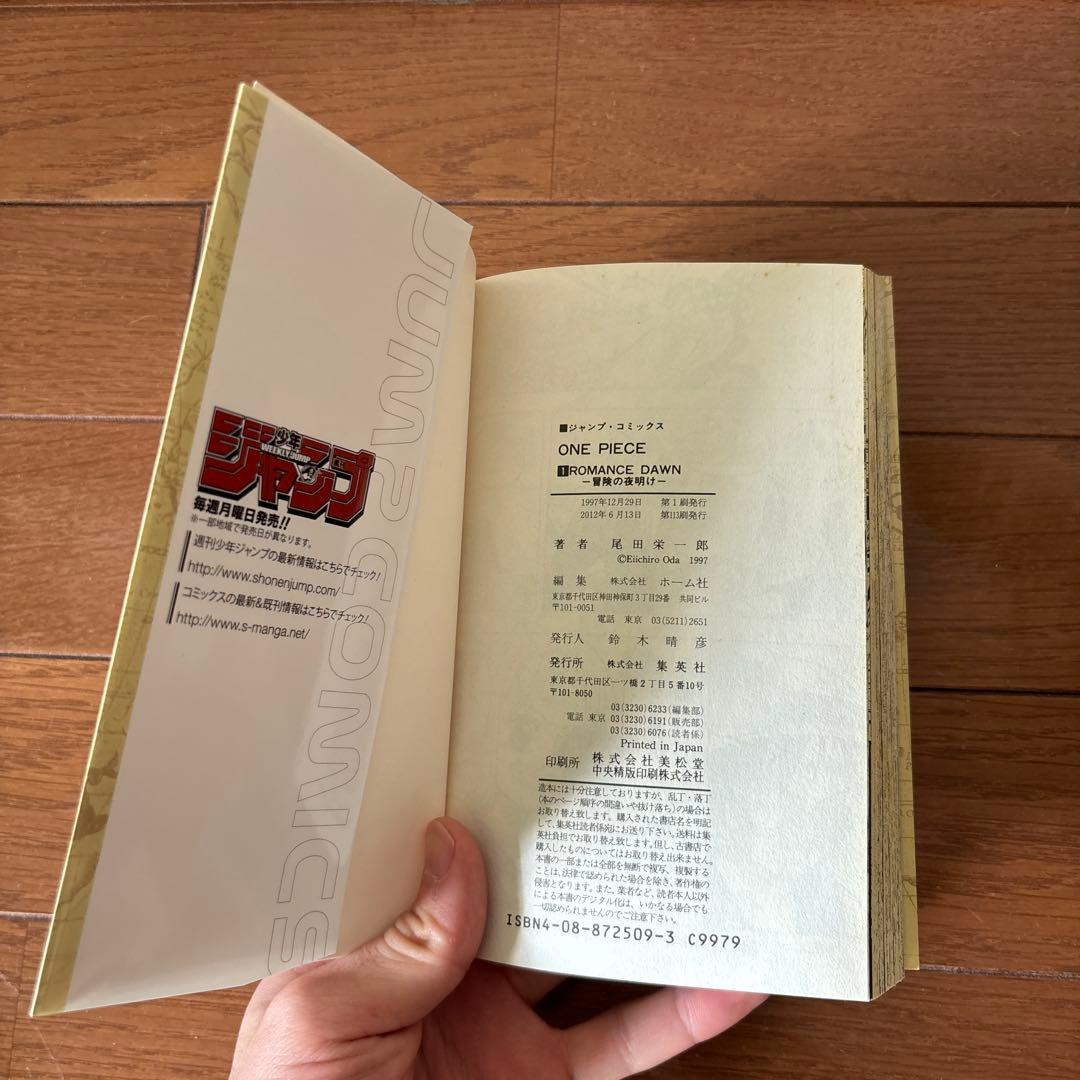 少年
WEEKLY JUMP
ジャンプ
毎週月曜日発売!!
※一部地域で発売日が異なります。
週刊少年ジャンプの最新情報はこちらでチェック!
http://www.shonenjump.com/
コミックスの最新&既刊情報はこちらでチェック!
http://www.s-manga.net/
JUMP COMICS
■ジャンプ・コミックス
ONE PIECE
1 ROMANCE DAWN
―冒険の夜明け―
1997年12月29日 第1刷発行
2012年6月13日 第113刷発行
著者 尾田栄一郎
©Eiichiro Oda 1997
編集 株式会社 ホーム社
東京都千代田区神田神保町3丁目29番 共同ビル
〒101-0051
電話 東京 03(5211)2651
発行人 鈴木晴彦
発行所 株式会社 集英社
東京都千代田区一ツ橋2丁目5番10号
〒101-8050
03(3230)6233(編集部)
電話 東京 03(3230)6191(販売部)
03(3230)6076(読者係)
Printed in Japan
印刷所 株式会社美松堂
中央精版印刷株式会社
造本には十分注意しておりますが、乱丁・落丁
(本のページ順序の間違いや抜け落ち)の場合は
お取り替え致します。購入された書店名を明記
して、集英社読者係宛にお送り下さい。送料は集
英社負担でお取り替え致します。但し、古書店で
購入したものについてはお取り替え出来ません。
本書の一部または全部を無断で複写、複製する
ことは、法律で認められた場合を除き、著作権の
侵害となります。また、業者など、読者本人以外
による本書のデジタル化は、いかなる場合でも
一切認められませんのでご注意下さい。
ISBN4-08-872509-3 C9979